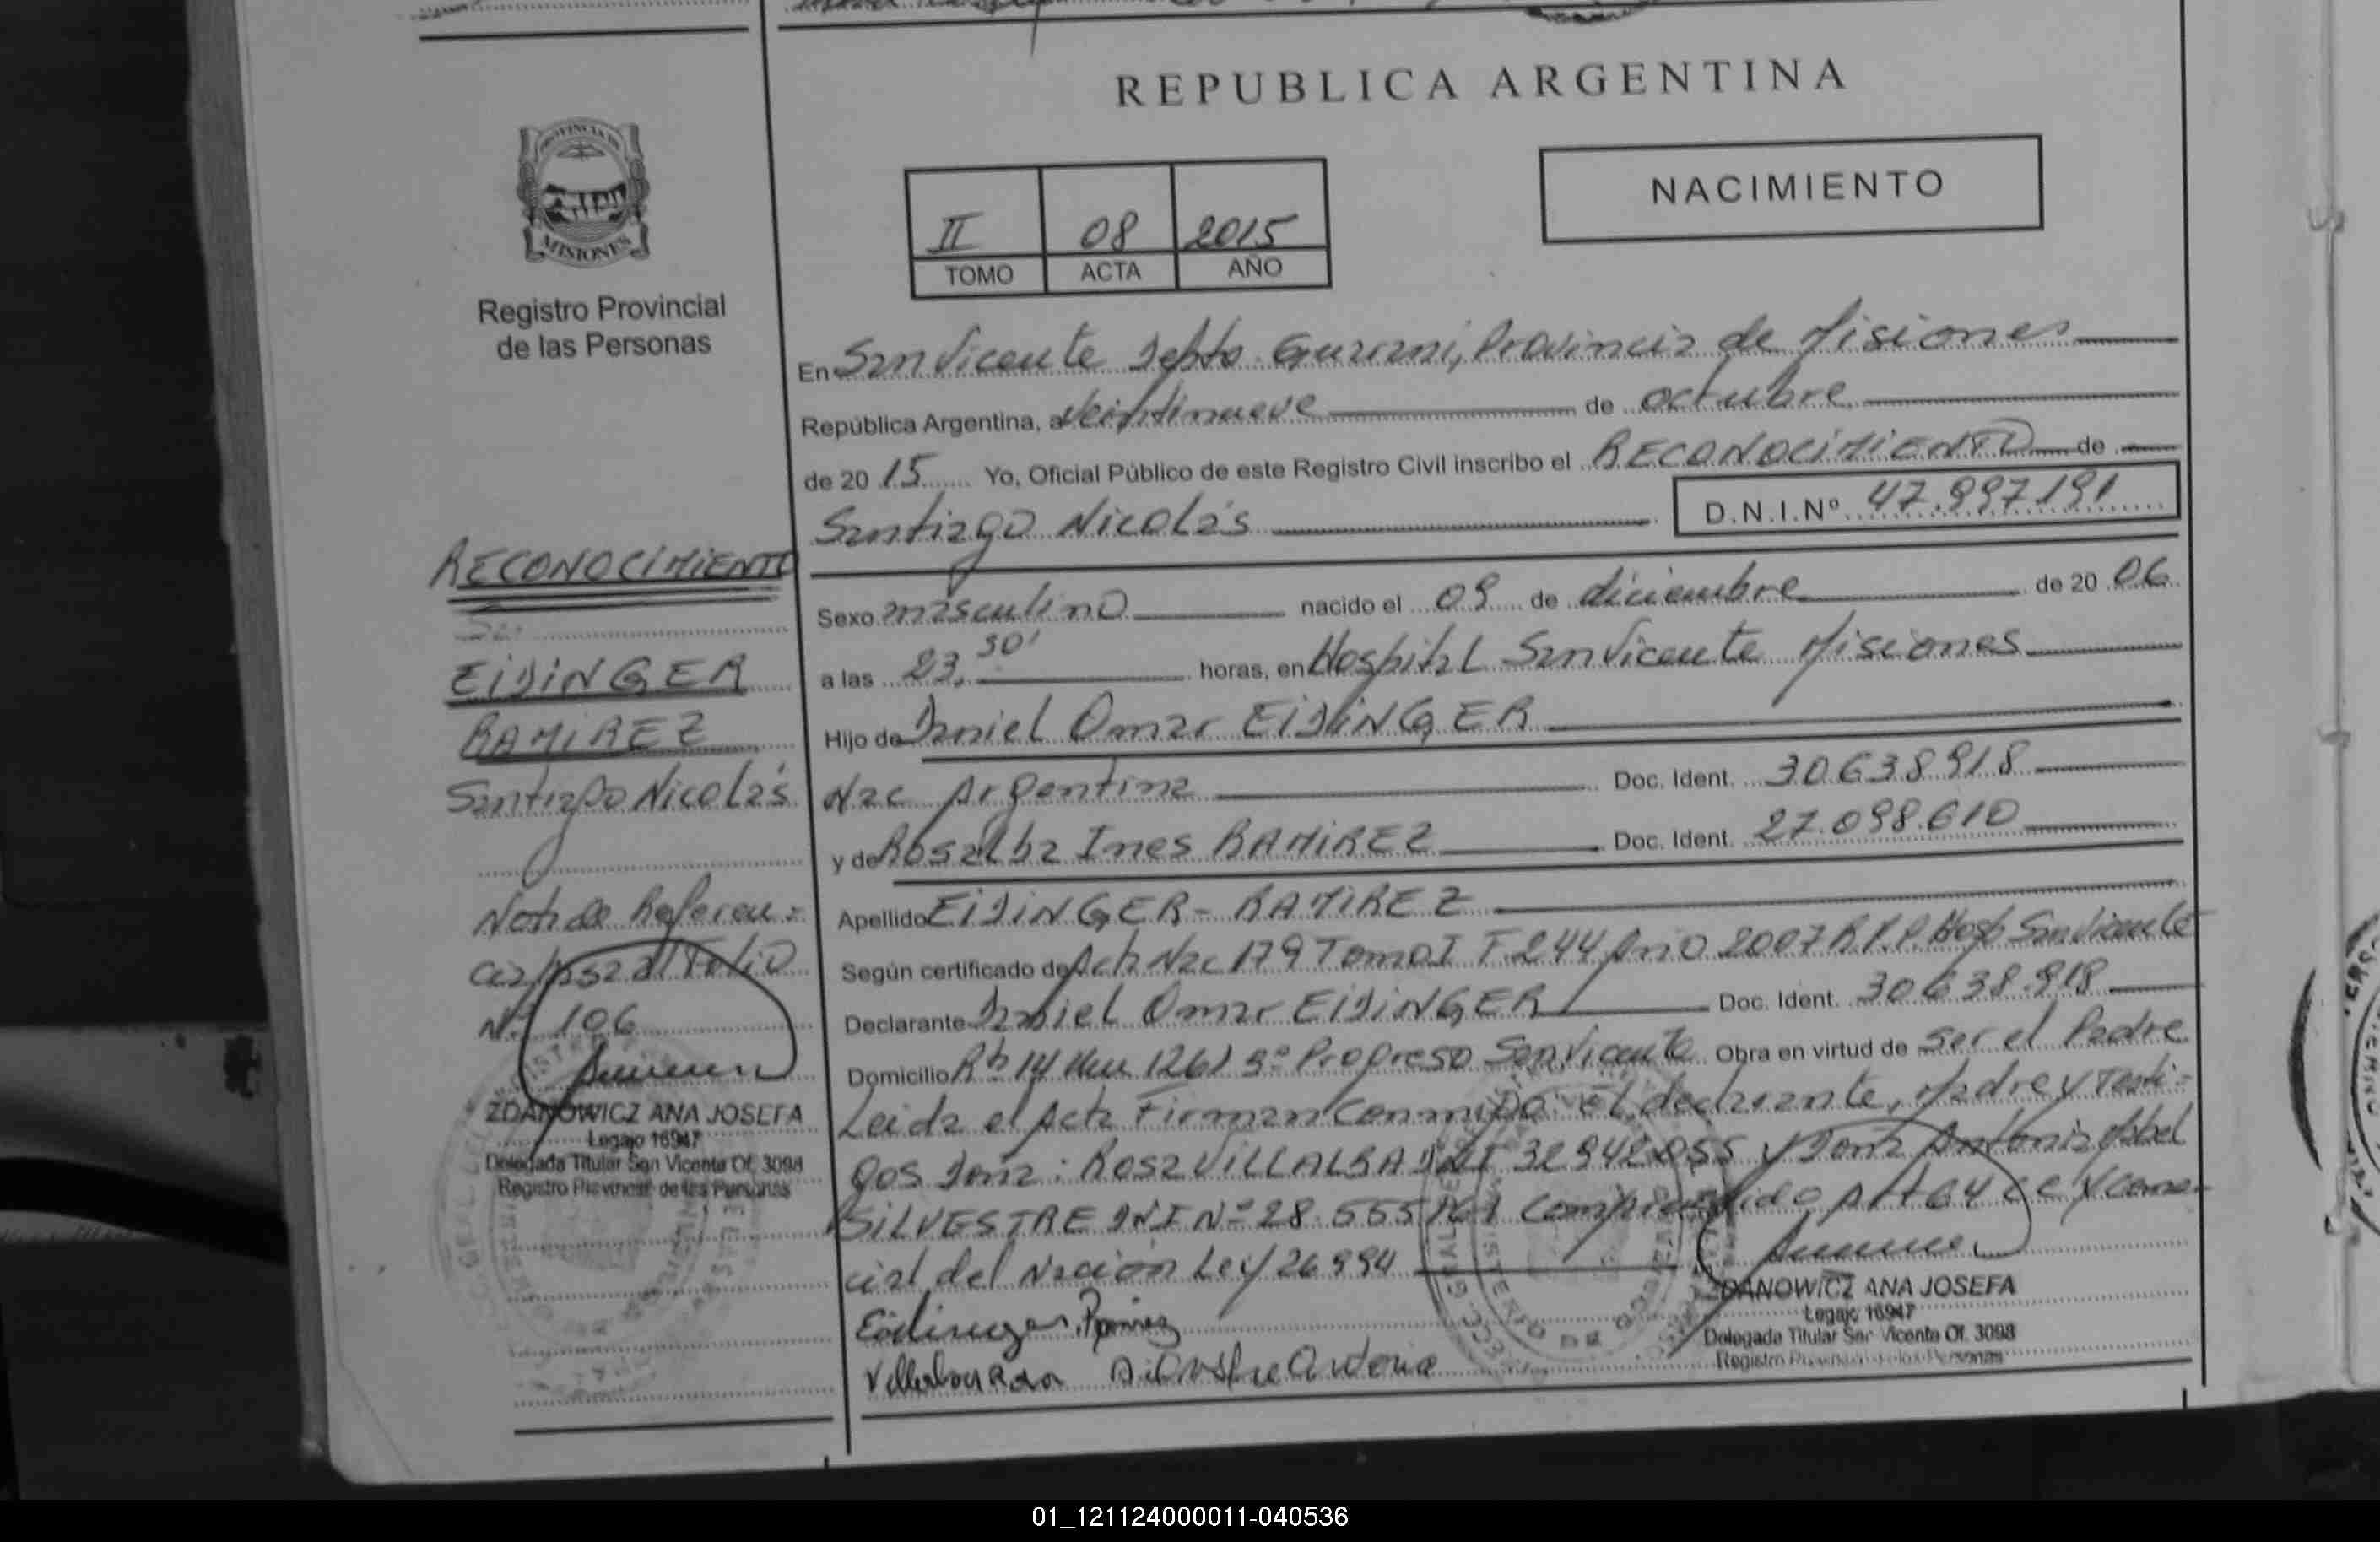 REPUBLICA ARGENTINA
NACIMIENTO
II 08 2015
TOMO ACTA AÑO
PROVINCIA DE
MISIONES
Registro Provincial
de las Personas
En San Vicente Depto Guarani, Provincia de Misiones
República Argentina, a Veintinueve de octubre
de 20 15 Yo, Oficial Público de este Registro Civil inscribo el RECONOCIMIENTO de
Santiago Nicolás D.N.I.Nº 47.997.191
Sexo masculino nacido el 09 de diciembre de 20 06
a las 23,30' horas, en Hospital San Vicente Misiones
Hijo de Daniel Omar EIDINGER
Nac Argentina Doc. Ident. 30.638.918
y de Rosalba Ines RAMIREZ Doc. Ident. 27.098.610
Apellido EIDINGER - RAMIREZ
Según certificado de Acta Nac 179 Tomo I F. 244 Año 2007 R.P.P. Hosp San Vicente
Declarante Daniel Omar EIDINGER Doc. Ident. 30.638.918
Domicilio Rta 14 Progreso San Vicente Obra en virtud de ser el Padre
Leida el Acta Firman conmigo el declarante, Madre y Testi-
gos Doña: Rosa VILLALBA DNI 32942055 y Doña Antonia
SILVESTRE DNI Nº 28.555 Art 64 CC y Comer-
cial del Nación Ley 26994
Eidinger Ramirez
Villalba Rosa Silvestre Antonia
ZDANOWICZ ANA JOSEFA
Legajo 16947
Delegada Titular San Vicente Of. 3098
Registro Provincial de las Personas
RECONOCIMIENTO
EIDINGER
RAMIREZ
Santiago Nicolás
Nota de Referen=
cia pasa al Folio
Nº 106
ZDANOWICZ ANA JOSEFA
Legajo 16947
Delegada Titular San Vicente Of. 3098
Registro Provincial de las Personas
01_121124000011-040536